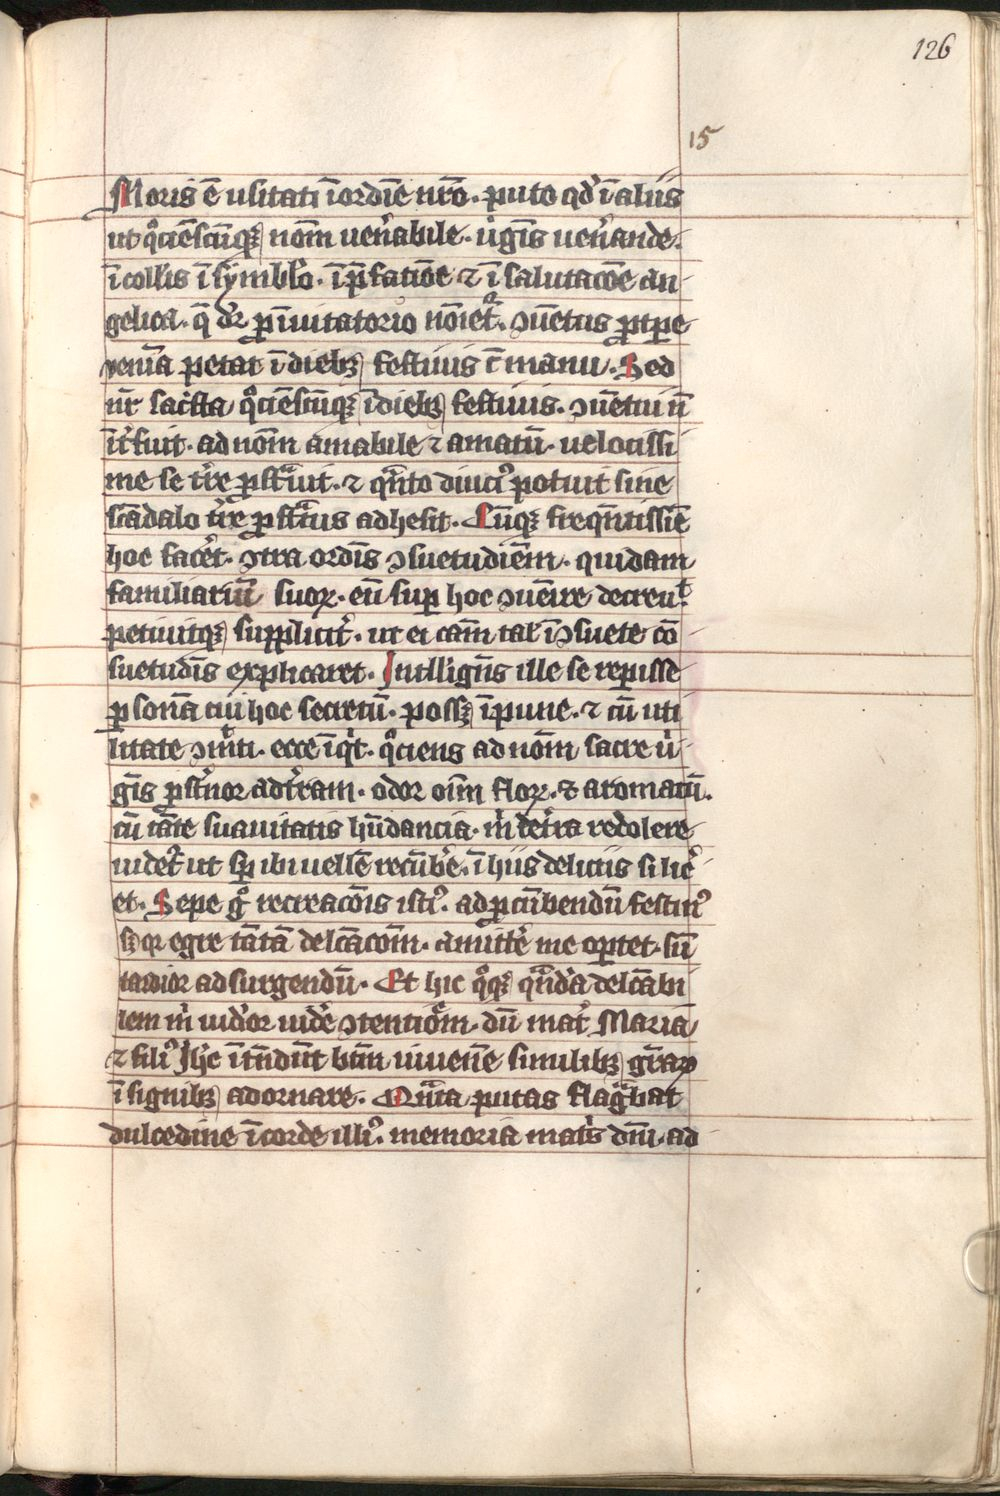 126
15
Moris ē usitati ī ordīe nr̄o. puto qd' ī aliis
ut qͦciēscūqꝫ nom̄ uen'abile. uͥgīs uen'ande.
ī coll̄is ī symbl'o. ī p̄fatiōe ⁊ ī salutacōe an
gelica. q̄ dr̄ p̱ īuitatorio nōīet'ᷓ. ꝯuētus p̱tpe
ueniā petat ī diebꝫ festiuis c̄ manu. Sed
nr̄ sac'sta qͦciēscūqꝫ ī diebꝫ festiuis. ꝯuētui n̄
īt'fuit. ad nom̄ amabile ⁊ amatū. uelocissi
me se t'rē p̱stᷓuit. ⁊ qᷓnto diuci' potuit sine
scādalo t'rē p̱stᷓtus adhesit. Cūqꝫ freq̄ntissīe
hoc fac'et. ꝯtra ordīs ꝯsuetudīem. quidam
familiariū suoꝝ. eū sup̱ hoc ꝯuēire decreuͭ.
petiuitqꝫ supplicit'. ut ei cām tal' īꝯsuete cō
suetudīs explicaret. Intlligēs ille se rep̱isse
p̱sonā cui hoc secretū. possꝫ īpune. ⁊ cū uti
litate ꝯmͭti. ecce īqͥt. qͦciens ad nom̄ sacre uͥ
gīs p̱st'nor ad t'ram. odor oīm floꝝ. ⁊ aromatū.
cū tāte suauitatis hūdancia. mͥ de t'ra redolere
uidet' ut sp̱ ibi uellē recūb'e. ī hiis deliciis si lic'
et. Sepe gͦ recreacōis isti'. ad p̱cūbendū festin'
sꝫ qꝛ egre tātā delcācōm. amitt'e me op̱tet. sū
tardior ad surgendū. Et hic qͦqꝫ qᷓndā delcābi
lem mͥ uid'or uid'e ꝯtentiōm. dū mat' Maria
⁊ fili' Jhc̄ ītēdūt btm̄ iuuenē similibꝫ gr̄aꝝ
ī signibꝫ adornare. Qᷓnta putas flagᷓbat
dulcedine ī corde illi'. memoria mat's dn̄i. ad